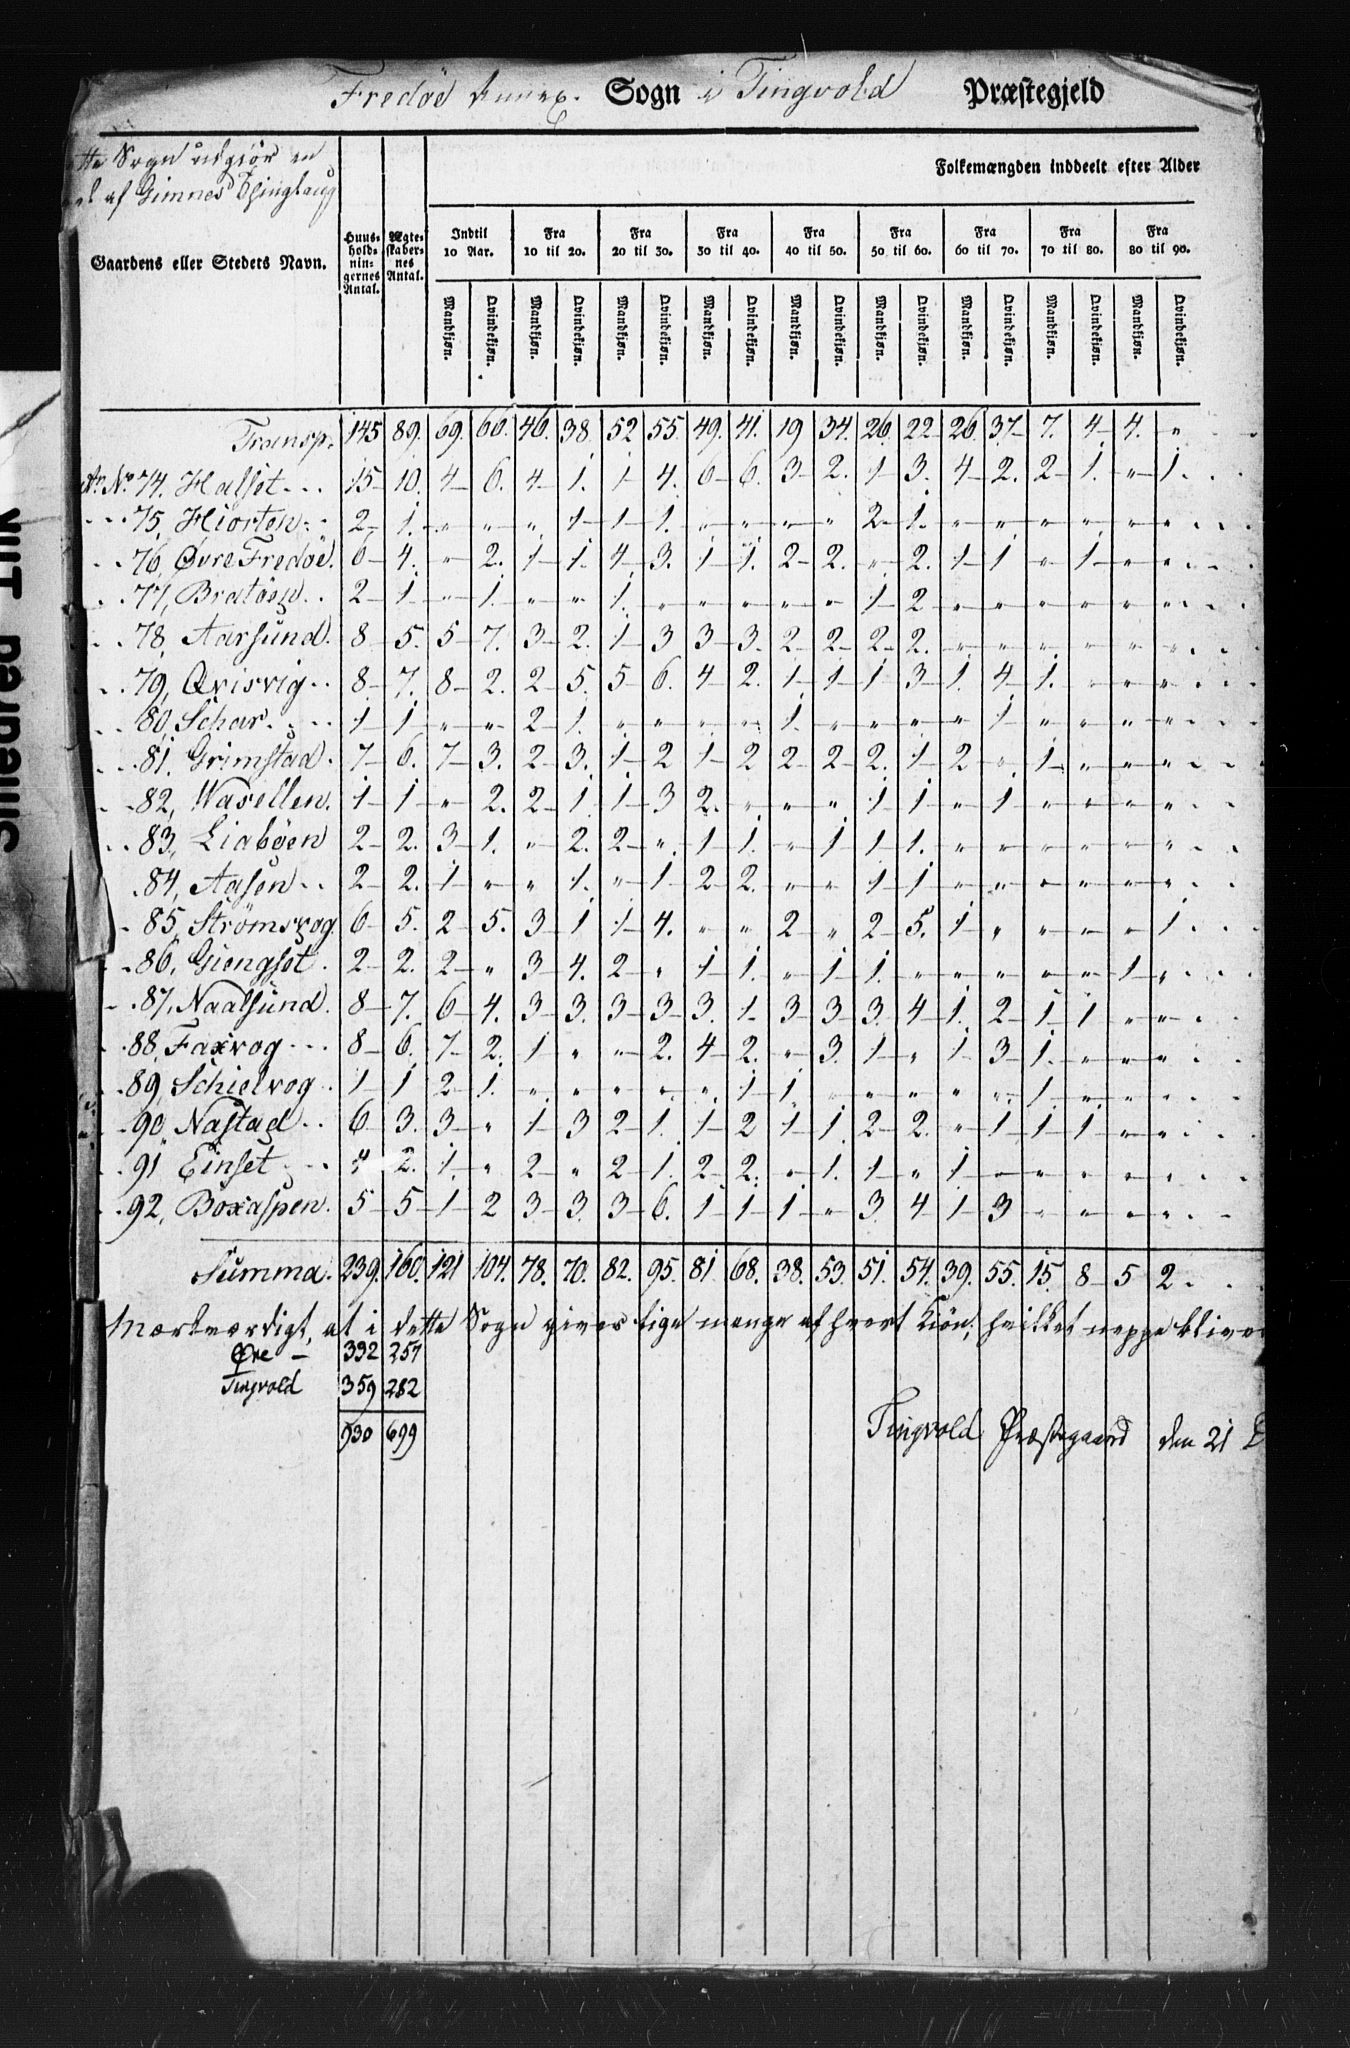 Fredøe Annex. Sogn i Tingvold Præstegjeld
Sogn udgiør en
af Gimnes Thinglaug
Folkemængden inddeelt efter Alder
Gaardens eller Stedets Navn. Huus-hold-nin-gernes Antal. Ægte-skaber-nes Antal. Indtil 10 Aar. Fra 10 til 20. Fra 20 til 30. Fra 30 til 40. Fra 40 til 50. Fra 50 til 60. Fra 60 til 70. Fra 70 til 80. Fra 80 til 90.
Mandkjøn. Qvindekjøn. Mandkjøn. Qvindekjøn. Mandkjøn. Qvindekjøn. Mandkjøn. Qvindekjøn. Mandkjøn. Qvindekjøn. Mandkjøn. Qvindekjøn. Mandkjøn. Qvindekjøn. Mandkjøn. Qvindekjøn. Mandkjøn. Qvindekjøn.
Transp. 145 89. 69. 66. 46. 38 52 55. 49. 41. 19 34. 26. 22 26. 37 7. 4 4. "
No 74. Halset 15 10. 4 6. 4 1. 1 4. 6 6. 3 2. 1 3. 4 2. 2 1. " 1.
75, Hiorten 2 1. " " " 1 1 1. " " " " 2 1. " " " " " "
76, Øvre Fredøe. 6 4. " 2. 1 1. 4. 3. 1 1. 2 2. " 2. 1 1 " 1 " "
77, Bratøen 2 1 " 1. " " 1. " " " " " 1 2 " " " " " "
78, Aarsund. 8 5. 5 7. 3 2. 1 3 3 3. 2 2 2 2. " " " " " "
79, Qvisvig 8 7. 8 2. 2 5. 5 6. 4 2. 1 1 1 3 1. 4 1. " " "
80, Schar. 1 1 " " 2 1. " " " " 1. " " " " 1 " " " "
81. Grimstad 7 6. 7 3. 2 3. 1 2 1 2 2 2 2. 1 2 " 1 " " "
82, Waxellen. 1 1 " 2. 2 1 1 3 2. " " " 1 1 " 1 " " " "
83, Liabøen 2 2. 3 1. " 2. 2 " 1 1. " 1 1 1. " " " " " "
84, Aasen 2 2. 1 " " 1. " 1 2 2. " " 1 1 " " " " " "
85, Strömsvog 6 5. 2 5. 3 1 1 4. " " 2 " 2 5. 1 " " " " 1.
86, Giengset 2 2. 2 " 3 4. 2 " 1 1. " 1 1. " " " " " 1 "
87, Naalsund. 8 7. 6 4. 3 3. 3 3 3. 1 3 3 3. 4 1. 2 1. 1 " "
88, Faxvog 8 6. 7 2. 1 " " 2. 4 2. " 3. 1 " 1 3 1. " " "
89, Schielvog 1 1 2 1. " " " " " 1 1 " " " " " 1 " " "
90 Nastad 6 3. 3 " 1 3 2 1. 1 2 1 1. 2 2. " 1 1 1. " "
91 Einset 4 2. 1. " 2 " 2 1. 2 2. " 1. 1 " 1 " " " " "
92, Boxaspen. 5 5 1 2 3 3. 3 6. 1 1 1 " 3. 4 1 3 " " " "
Summa. 239. 160. 121 104. 78. 70. 82. 95. 81 68. 38. 53. 51. 54. 39. 55. 15. 8 5 2
Mærkværdigt, at i dette Sogn gives lige mange af hvert Kiön; hvilket neppe bliver
Øre 332 257
Tingvold 359 282
930 699
Tingvold Præstegaard den 21 D